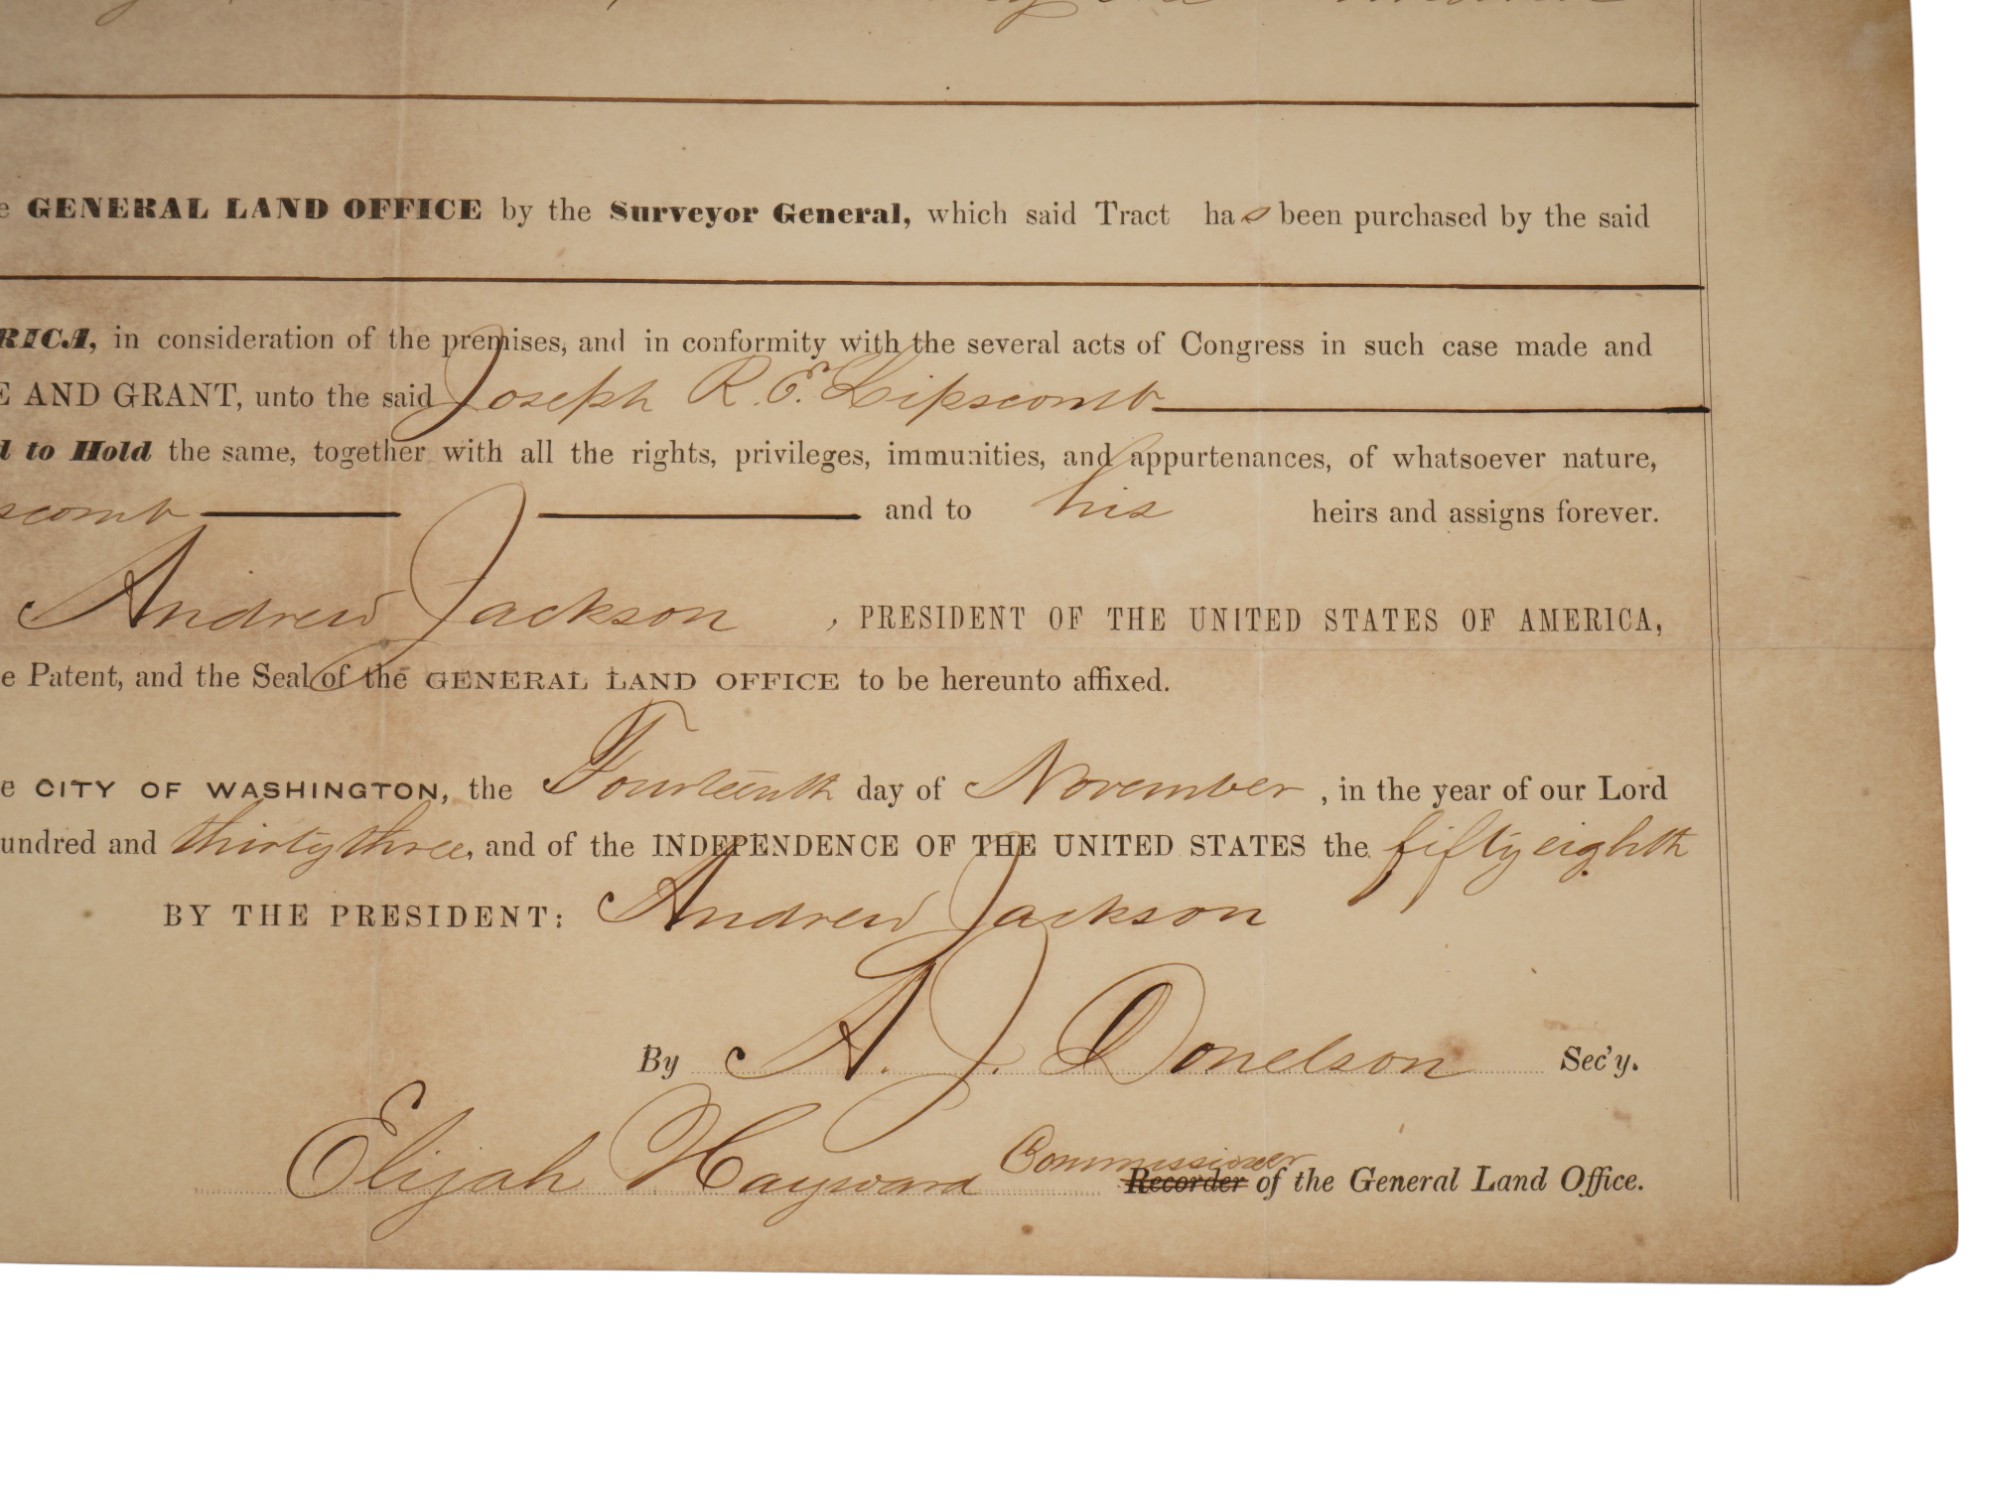 GENERAL LAND OFFICE by the Surveyor General, which said Tract has been purchased by the said
RICA, in consideration of the premises, and in conformity with the several acts of Congress in such case made and
E AND GRANT, unto the said Joseph R. E. Lipscomb
d to Hold the same, together with all the rights, privileges, immunities, and appurtenances, of whatsoever nature,
scomb and to his heirs and assigns forever.
Andrew Jackson , PRESIDENT OF THE UNITED STATES OF AMERICA,
e Patent, and the Seal of the GENERAL LAND OFFICE to be hereunto affixed.
e CITY OF WASHINGTON, the Fourteenth day of November , in the year of our Lord
undred and thirty three, and of the INDEPENDENCE OF THE UNITED STATES the fifty eighth
BY THE PRESIDENT: Andrew Jackson
By A. J. Donelson Sec'y.
Elijah Hayward Commissioner Recorder of the General Land Office.